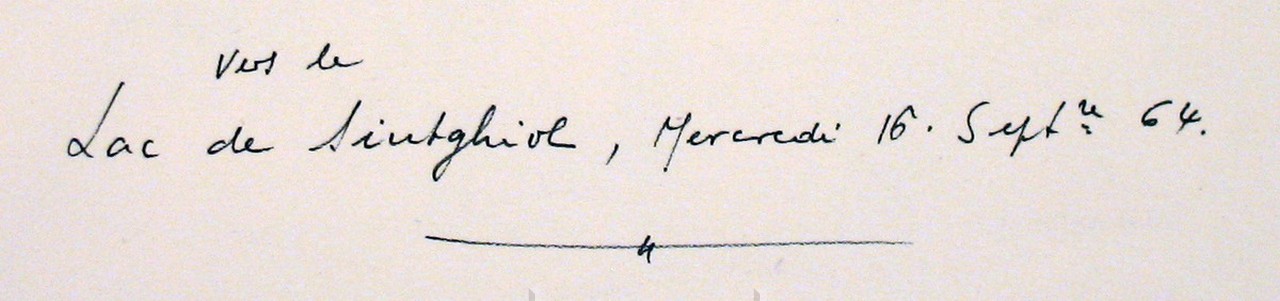 vers le
Lac de Sintghiol, Mercredi 16. Sept.re 64.